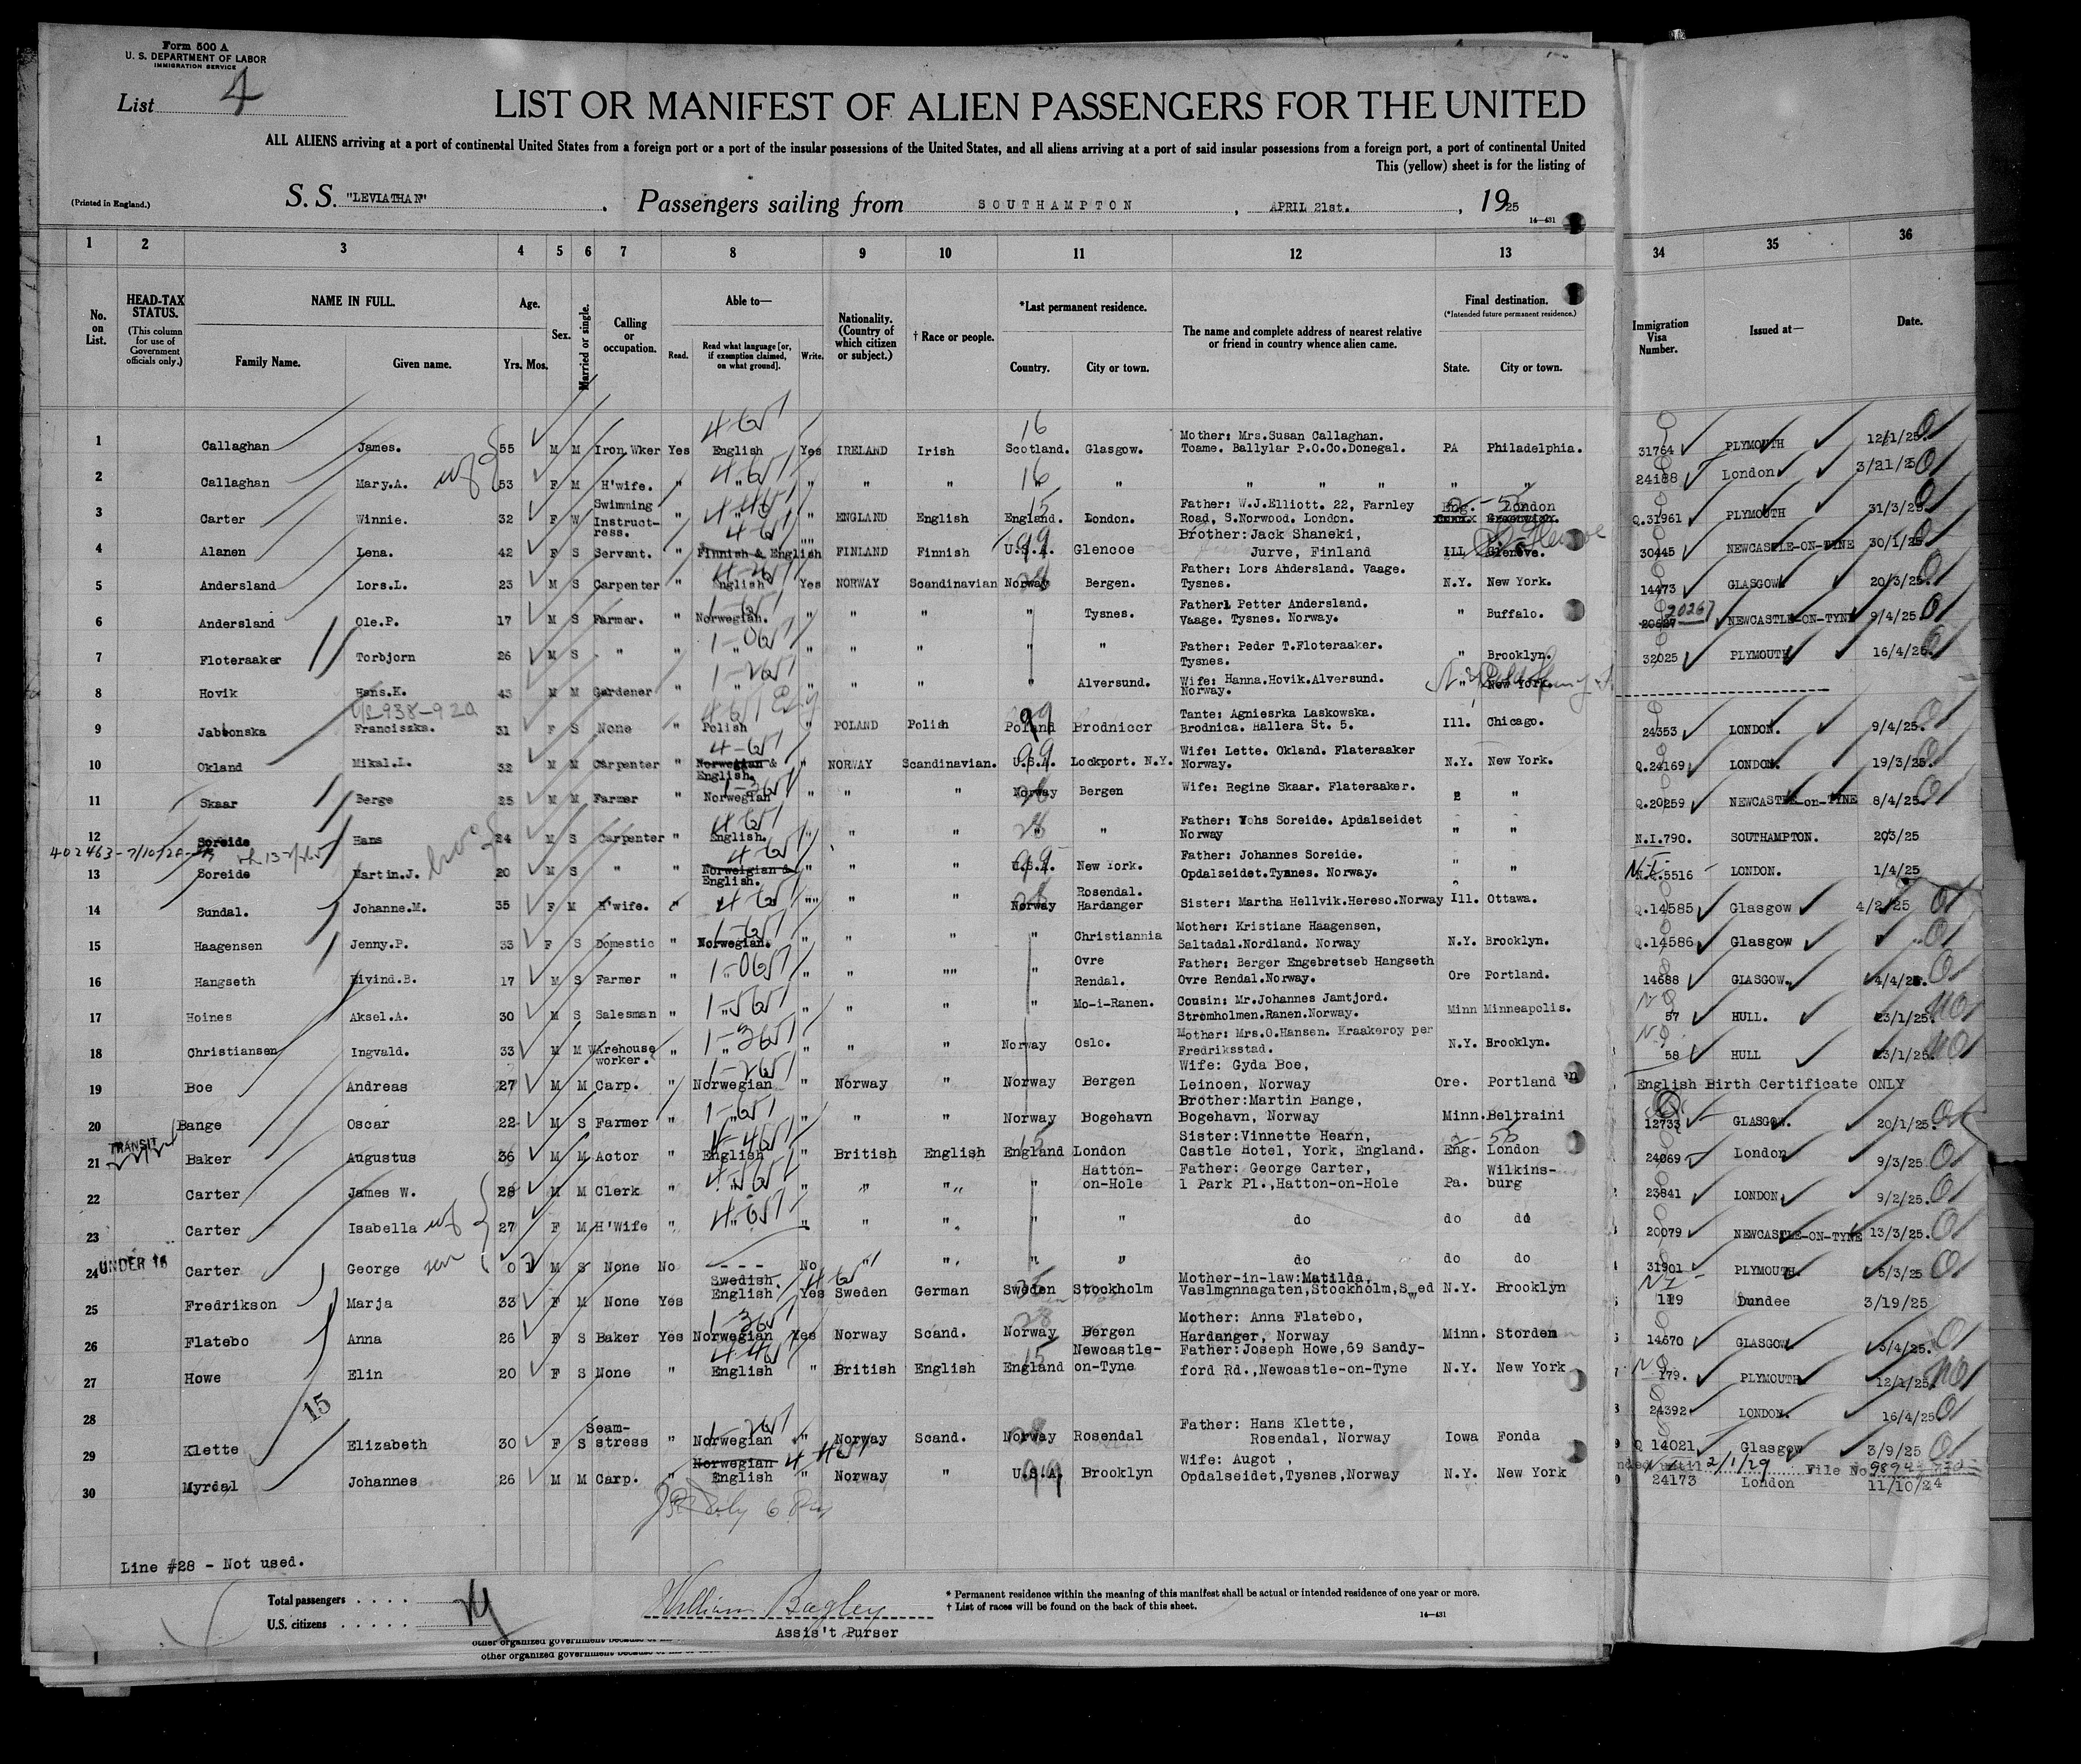 Form 500 A
U. S. DEPARTMENT OF LABOR
IMMIGRATION SERVICE
List 4
LIST OR MANIFEST OF ALIEN PASSENGERS FOR THE UNITED
ALL ALIENS arriving at a port of continental United States from a foreign port or a port of the insular possessions of the United States, and all aliens arriving at a port of said insular possessions from a foreign port, a port of continental United
This (yellow) sheet is for the listing of
(Printed in England.) S. S. "LEVIATHAN" . Passengers sailing from SOUTHAMPTON , APRIL 21st. , 1925
14—431
1 2 3 4 5 6 7 8 9 10 11 12 13 34 35 36
No. on List. HEAD-TAX STATUS. (This column for use of Government officials only.) NAME IN FULL. Family Name. Given name. Age. Yrs. Mos. Sex. Married or single. Calling or occupation. Able to— Read. Read what language [or, if exemption claimed, on what ground]. Write. Nationality. (Country of which citizen or subject.) † Race or people. *Last permanent residence. Country. City or town. The name and complete address of nearest relative or friend in country whence alien came. Final destination. (*Intended future permanent residence.) State. City or town. Immigration Visa Number. Issued at— Date.
1 Callaghan James. 55 M M Iron Wker Yes English Yes IRELAND Irish Scotland. Glasgow. Mother: Mrs.Susan Callaghan. Toame. Ballylar P.O.Co.Donegal. PA Philadelphia. 31764 PLYMOUTH 12/1/25.
2 Callaghan Mary.A. wf 53 F M H'wife. " " " " " " " " " " " " " 24188 London 3/21/25
3 Carter Winnie. 32 F W Swimming Instruct-ress. " " " ENGLAND English England. London. Father: W.J.Elliott. 22, Farnley Road, S.Norwood. London. Eng. London Q.31961 PLYMOUTH 31/3/25
4 Alanen Lena. 42 F S Servant. " Finnish & English "" FINLAND Finnish U.S.A. Glencoe Brother: Jack Shaneki, Jurve, Finland ILL Glencoe 30445 NEWCASTLE-ON-TYNE 30/1/25
5 Andersland Lors.L. 23 M S Carpenter " English Yes NORWAY Scandinavian Norway Bergen. Father: Lors Andersland. Vaage. Tysnes. N.Y. New York. 14473 GLASGOW 20/3/25.
6 Andersland Ole.P. 17 M S Farmer. " Norwegian. " " " Tysnes. Father: Petter Andersland. Vaage. Tysnes. Norway. " Buffalo. 20267 NEWCASTLE-ON-TYNE 9/4/25
7 Floteraaker Torbjorn 26 M S " " " " " " " Father: Peder T.Floteraaker. Tysnes. " Brooklyn. 32025 PLYMOUTH 16/4/25
8 Hovik Hans.K. 43 M M Gardener " " " " " " Alversund. Wife: Hanna.Hovik.Alversund. Norway. " New York.
9 Jabłonska Franciszka. 31 F S None " Polish " POLAND Polish Poland Brodnicer Tante: Agniesrka Laskowska. Brodnica. Hallera St. 5. Ill. Chicago. 24353 LONDON. 9/4/25.
10 Okland Mikal.L. 32 M M Carpenter " Norwegian & English. " NORWAY Scandinavian. U.S.A. Lockport. N.Y. Wife: Lette. Okland. Flateraaker Norway. N.Y. New York. Q.24169 LONDON. 19/3/25.
11 Skaar Berge 25 M M Farmer " Norwegian " " " Norway Bergen Wife: Regine Skaar. Flateraaker. " " Q.20259 NEWCASTLE-on-TYNE 8/4/25
12 Soreide Hans 24 M S Carpenter " English. " " " " " Father: Wohs Soreide. Apdalseidet Norway " " N.I.790. SOUTHAMPTON. 20/3/25
402463-7/10/20
13 Soreide Martin.J. 20 M S " " Norweigian & English. " " " U.S.A. New York. Father: Johannes Soreide. Opdalseidet.Tysnes. Norway. " " 5516 LONDON. 1/4/25
14 Sundal. Johanne.M. 35 F M H'wife. " " "" " " Norway Rosendal. Hardanger Sister: Martha Hellvik.Hereso.Norway Ill. Ottawa. Q.14585 Glasgow 4/2/25
15 Haagensen Jenny.P. 33 F S Domestic " Norwegian. " " " " Christiannia Mother: Kristiane Haagensen, Saltadal.Nordland. Norway N.Y. Brooklyn. Q.14586 Glasgow "
16 Hangseth Eivind.B. 17 M S Farmer " " " " "" " Ovre Rendal. Father: Berger Engebretseb Hangseth Ovre Rendal.Norway. Ore Portland. 14688 GLASGOW. 4/4/25.
17 Hoines Aksel.A. 30 M S Salesman " " " " " " Mo-i-Ranen. Cousin: Mr.Johannes Jamtjord. Strømholmen.Ranen.Norway. Minn Minneapolis. 57 HULL. 23/1/25.
18 Christiansen Ingvald. 33 M M Warehouse worker. " " " " " Norway Oslo. Mother: Mrs.O.Hansen. Kraakeroy per Fredriksstad. N.Y. Brooklyn. 58 HULL 23/1/25.
19 Boe Andreas 27 M M Carp. " Norwegian " Norway " Norway Bergen Wife: Gyda Boe, Leinoen, Norway Ore. Portland English Birth Certificate ONLY
20 Bange Oscar 22 M S Farmer " " " " " Norway Bogehavn Brother:Martin Bange, Bogehavn, Norway Minn. Beltraini 12733 GLASGOW. 20/1/25.
TRANSIT
21 Baker Augustus 36 M M Actor " English " British English England London Sister:Vinnette Hearn, Castle Hotel, York, England. Eng. London 24069 London 9/3/25
22 Carter James W. 28 M M Clerk " " " " " " Hatton-on-Hole Father: George Carter, 1 Park Pl.,Hatton-on-Hole Pa. Wilkins-burg 23841 LONDON. 9/2/25.
23 Carter Isabella wf 27 F M H'Wife " " " " " " " do do do 20079 NEWCASTLE-ON-TYNE 13/3/25.
UNDER 16
24 Carter George son 0 M S None No - - - No " " " " do do do 31901 PLYMOUTH. 5/3/25
25 Fredrikson Marja 33 F M None Yes Swedish. English. Yes Sweden German Sweden Stockholm Mother-in-law:Matilda, Vaslmgnnagaten,Stockholm,Swed N.Y. Brooklyn 119 Dundee 3/19/25
26 Flatebo Anna 26 F S Baker Yes Norwegian Yes Norway Scand. Norway Bergen Mother: Anna Flatebo, Hardanger, Norway Minn. Storden 14670 GLASGOW 3/4/25.
27 Howe Elin 20 F S None " English " British English England Newcastle-on-Tyne Father:Joseph Howe,69 Sandy-ford Rd.,Newcastle-on-Tyne N.Y. New York 179. PLYMOUTH 12/1/25
28 24392 LONDON. 16/4/25
15
29 Klette Elizabeth 30 F S Seam-stress " Norwegian " Norway Scand. Norway Rosendal Father: Hans Klette, Rosendal, Norway Iowa Fonda Q 14021 Glasgow 3/9/25
2/1/29 File No
30 Myrdal Johannes 26 M M Carp. " Norwegian English " Norway " U.S.A. Brooklyn Wife: Augot , Opdalseidet,Tysnes,Norway N.Y. New York 24173 London 11/10/24
Line #28 - Not used.
Total passengers . . . .
U.S. citizens . . . . .
William Bagley
Assis't Purser
* Permanent residence within the meaning of this manifest shall be actual or intended residence of one year or more.
† List of races will be found on the back of this sheet.
14—431
other organized government because of
other organized government because of